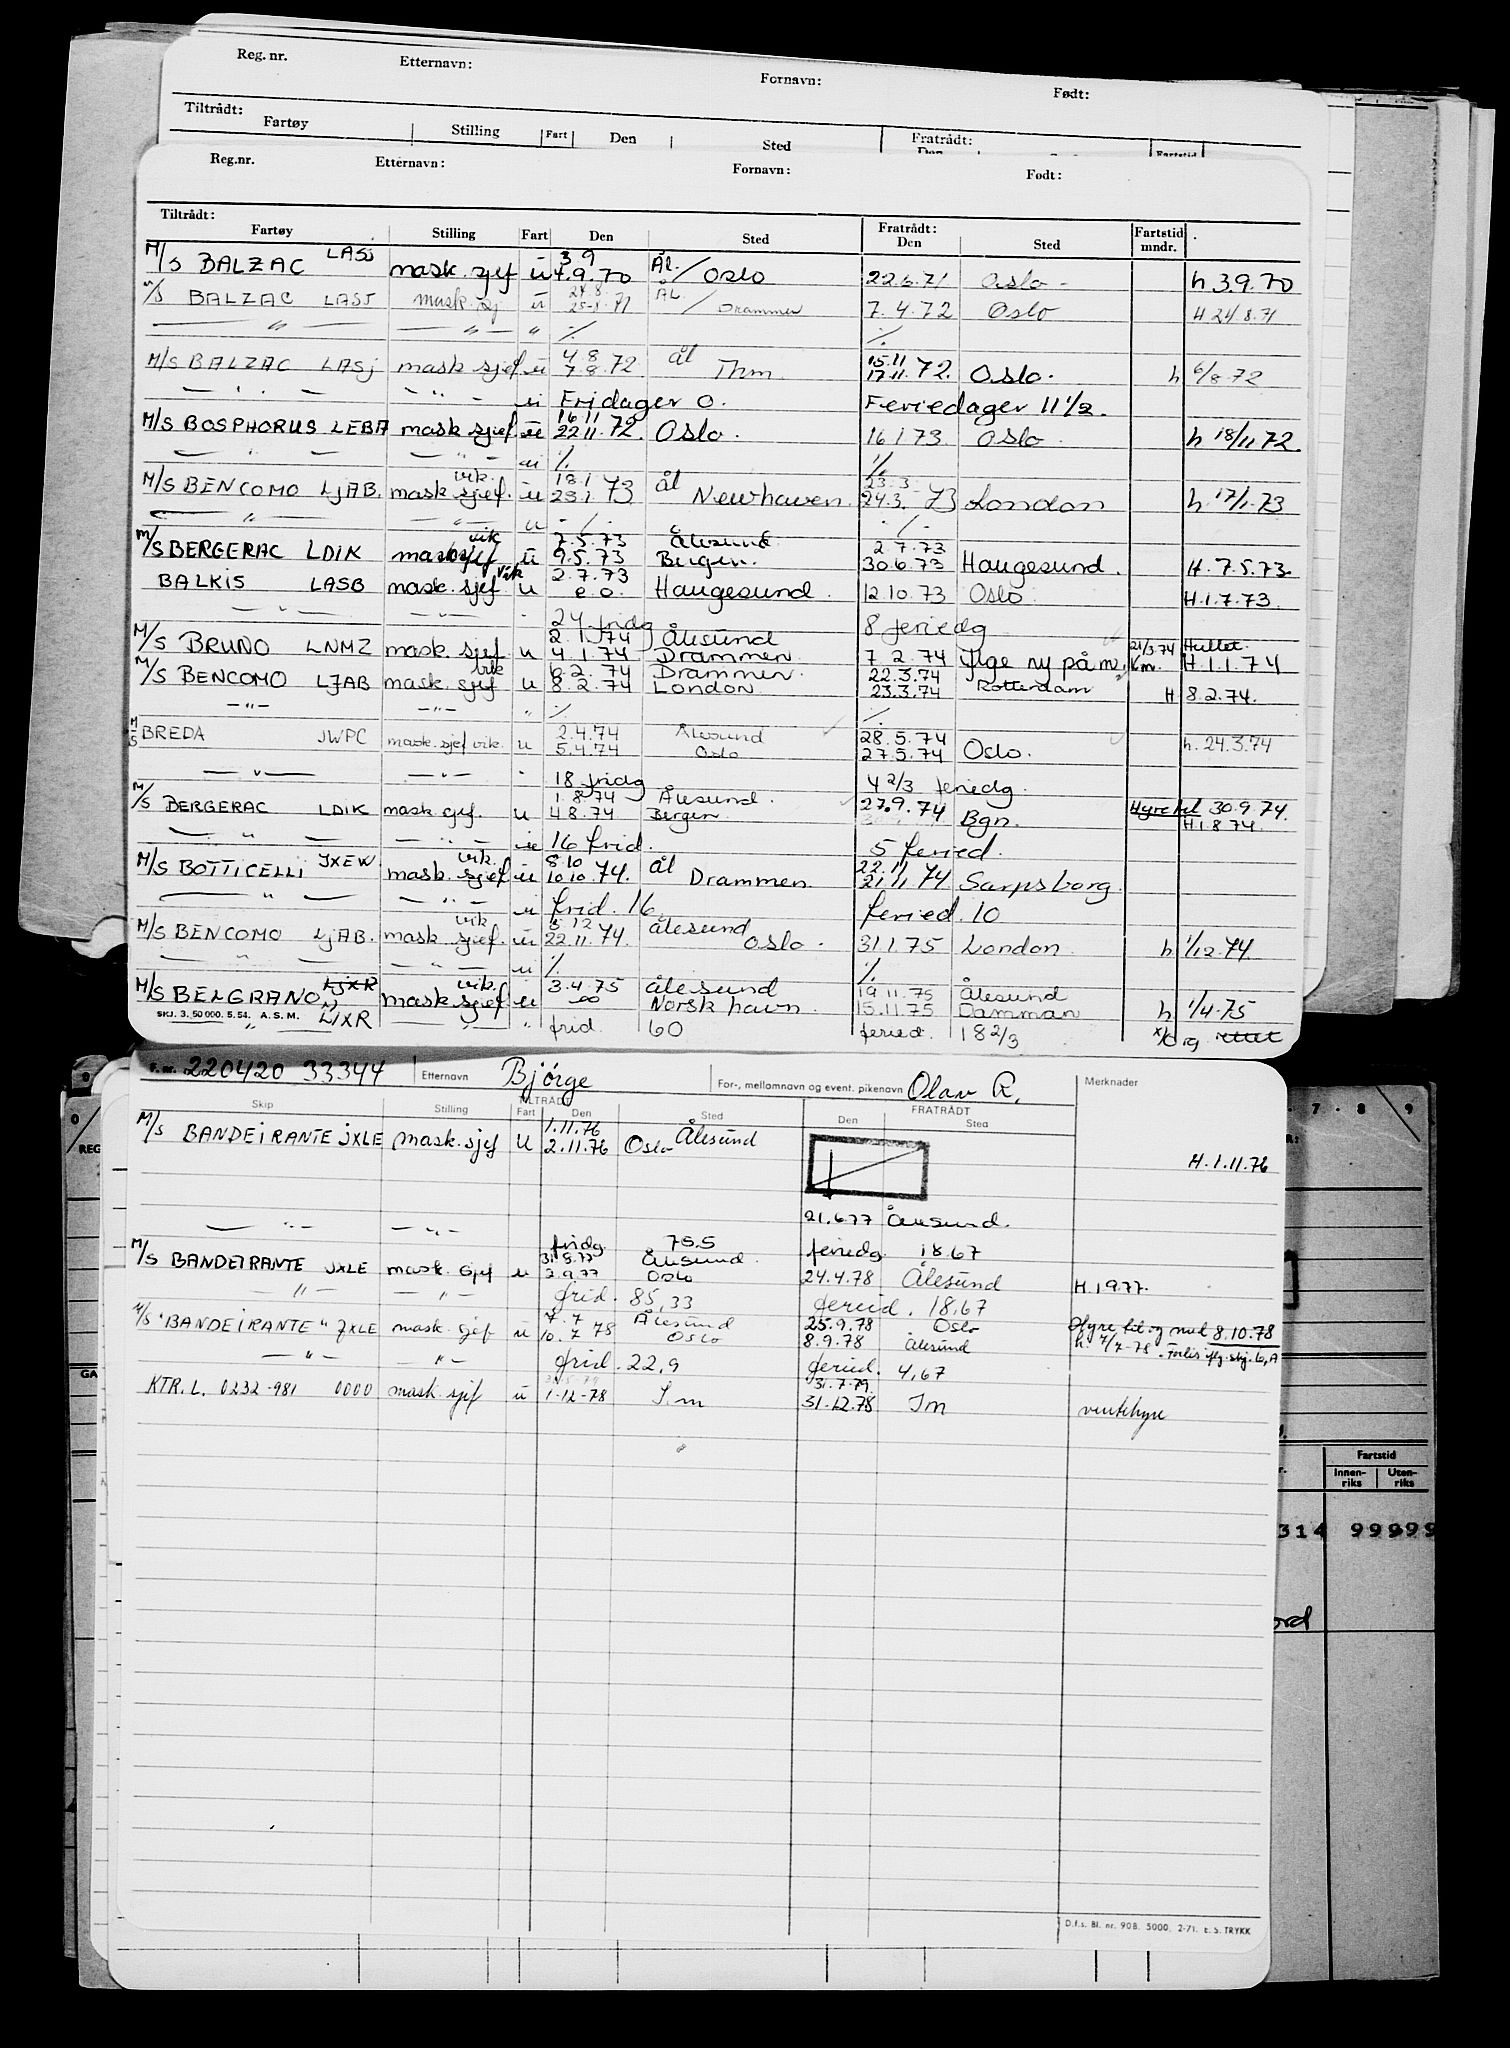 Reg. nr. Etternavn: Fornavn: Født:
Tiltrådt: Fratrådt:
Fartøy Stilling Fart Den Sted Den Fartstid
Reg.nr. Etternavn: Fornavn: Født:
Tiltrådt: Fratrådt: Fartstid
Fartøy Stilling Fart Den Sted Den Sted mndr.
3 9
M/S BALZAC LASJ mask. sjef u 4.9.70 Ål./Oslo 22.6.71 Oslo - h 3.9.70
24.8
M/S BALZAC LASJ mask. sj u 25.8.71 ÅL / Drammen 7.4.72 Oslo H 24/8.71
— " — — " — " % %
4 8
M/S BALZAC LASJ mask sjef u 7.8.72 ål Thm. 15.11 17.11.72. Oslo. h 6/8.72
— " — — " — u Fridager 0. Feriedager 11 1/2.
16 11
M/S BOSPHORUS LEBA mask sjef u 22 11.72. Oslo. 16 1 73 Oslo h 18/11 72.
— " — — " — u % %
vik. 18.1 23.3
M/S BENCOMO LJAB. mask sjef. u 23.1.73 ål Newhaven. 24.3.73 London h. 17/1.73
— " — — " — u - / - - / -
vik 7.5.73 Ålesund 2.7.73
M/S BERGERAC LDIK mask sjef u 9.5.73 Bergen. 30.6.73 Haugesund. H. 7.5.73.
vik 2.7.73
BALKIS LASB mask. sjef u e.o. Haugesund. 12.10.73 Oslo. H.1.7.73.
— " — — " — - 24 fridg 8 feriedg
2.1.74 Ålesund 21/3.74 Hullet.
M/S BRUNO LNMZ mask. sjef. u 4.1.74 Drammen. 7 2.74 Ifge ny påm. H.1.1.74
vik 6.2.74 Drammen. 22.3.74
M/S BENCOMO LJAB mask. sjef u 8.2.74 London 23.3.74 Rotterdam H 8.2.74.
— " — — " — " % %
2.4.74 Ålesund 28.5.74
M/S BREDA JWPC mask. sjef vik. u 5.4.74 Oslo 27.5.74 Oslo. h. 24.3.74
— " — — " — - 18 fridg 4 2/3 feriedg.
1.8.74 Ålesund. 27.9.74 Hyre til 30.9.74.
M/S BERGERAC LDIK mask. sjef. u 4.8.74 Bergen Bgn. H.1.8.74.
— " — — " — u 16 frid. 5 feried.
vik. 8.10 22.11
M/S BOTTICELLI JXEW mask. sjef u 10.10.74. ål Drammen. 21.11 74 Sarpsborg.
— " — — " — u frid. 16 feried. 10
vik 5 12 ålesund
M/S BENCOMO LJAB. mask sjef. u 22.11.74. Oslo. 31.1.75 London h 1/12.74
— " — — " — u % %
LJXR vik. 3.4.75 ålesund 19.11.75 Ålesund
M/S BELGRANO mask sjef u oo Norsk havn 15.11.75 Damman h 1/4.75
SKJ. 3. 50 000. 5. 54. A. S. M. " LJXR — " — " frid. 60 feried. 18 2/3
F. nr. 220420 33344 Etternavn Bjørge For-, mellomnavn og event. pikenavn Olav R. Merknader
Skip Stilling TILTRÅDT Fart Den Sted FRATRÅDT Den Sted
1.11.76
M/S BANDEIRANTE JXLE mask. sjef u 2.11.76 Oslo Ålesund H. 1.11.76
21.6.77 Ålesund.
— " — — " — fridg. 75.5 feriedg. 18.67
31.8.77 Ålesund.
M/S BANDEIRANTE JXLE mask. sjef u 2.9.77 Oslo 24.4.78 Ålesund H.1.9.77.
— " — — " — frid. 85,33 feried. 18,67
7.7 Ålesund 25.9.78 Oslo Hyre til og med 8.10.78
M/S "BANDEIRANTE" JXLE mask. sjef u 10.7 78 Oslo 8.9.78 Ålesund h. 7/7-78. Forlis iflg. skj. 6,A
— " — — " — frid. 22,9 feried. 4,67
31.7.79
KTR. L. 0232-981 0000 mask. sjef u 1-12-78 I.m 31.12.78 Im ventehyre
D.f.s. Bl. nr. 90B. 5000. 2-71. E. S. TRYKK
7 - 8 - 9
REG
GA
Fartstid
Innen-riks Uten-riks
314 99999